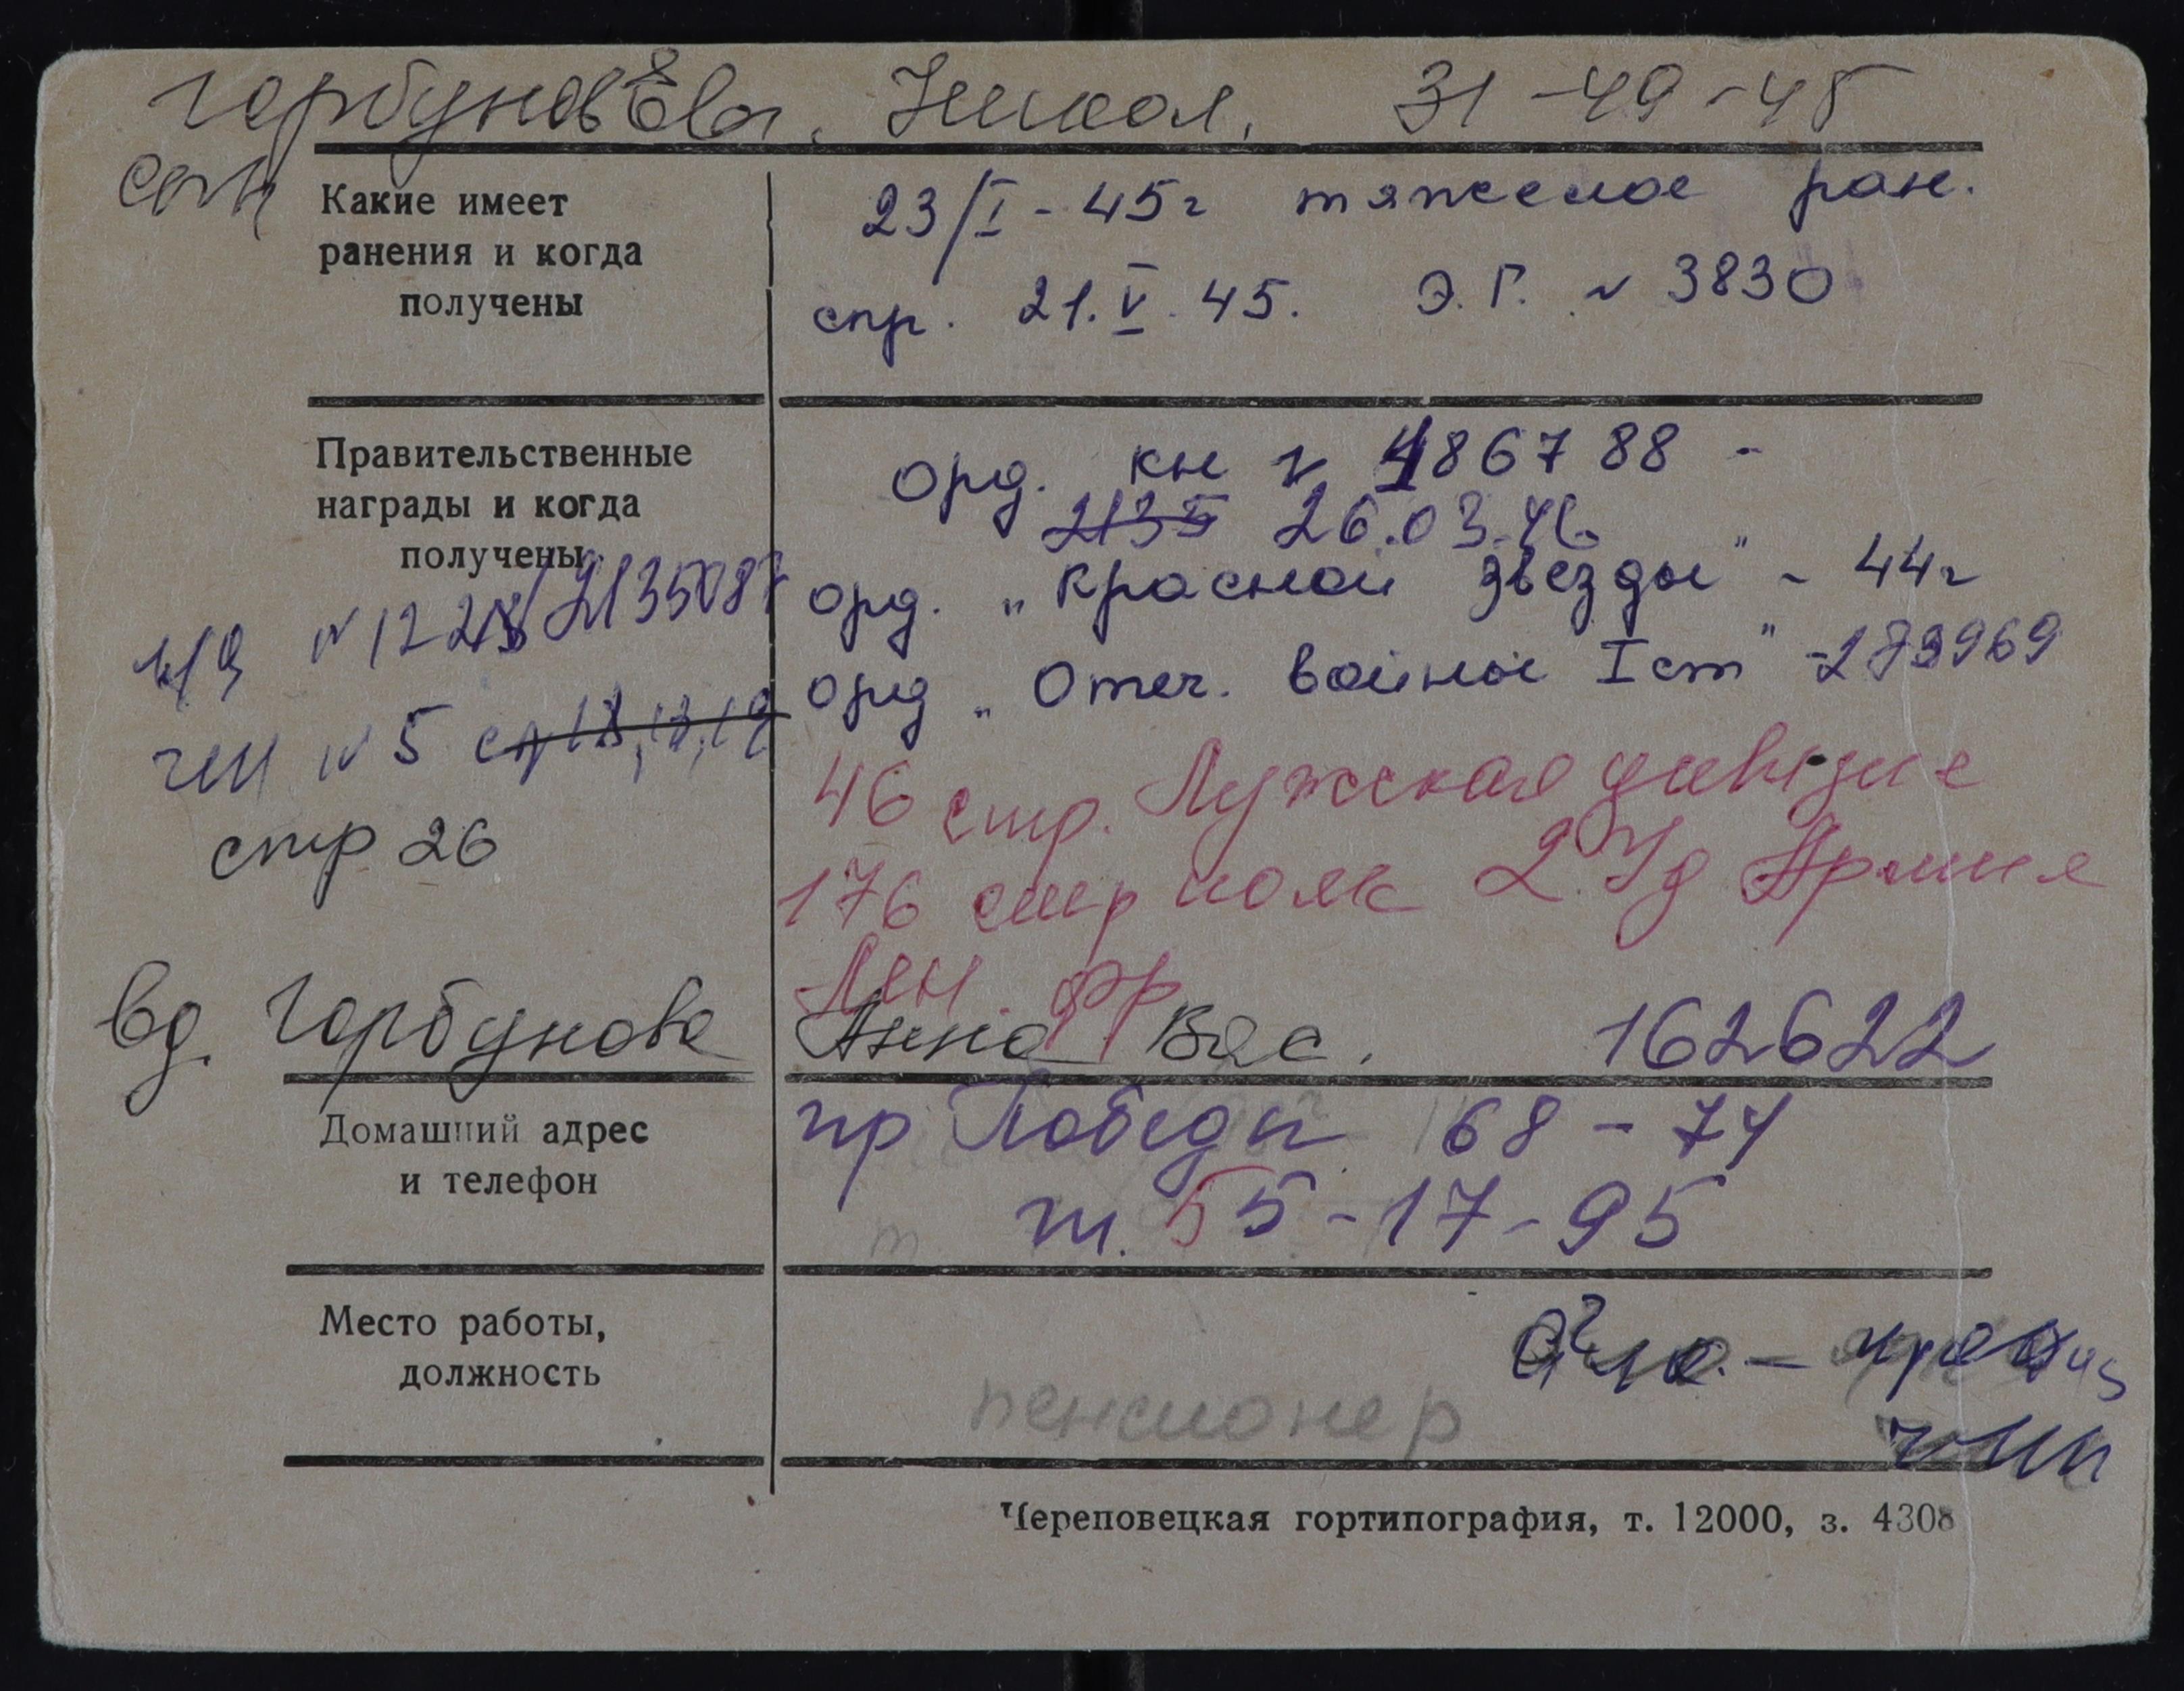 Горбунов Никол. 31-49-45
сын
Какие имеет
ранения и когда
получены
23/I-45г тяжелое ран.
спр. 21.V.45. Э.Г. № 3830
Правительственные
награды и когда
получены
орд. кн № 486788 -
2135 26.03.46
орд. „Красной Звезды" - 44г
орд „Отеч. войны I ст" - 273969
2135087
№ 5
стр 26
46 стр. Лужская дивизия
176 стр полк 2 Уд Армия
Лен. фр
вд. Горбунова Анна Вас. 162622
Домашний адрес
и телефон
пр Победы 68 - 74
т. 55-17-95
Место работы,
должность
пенсионер
Череповецкая гортипография, т. 12000, з. 4308